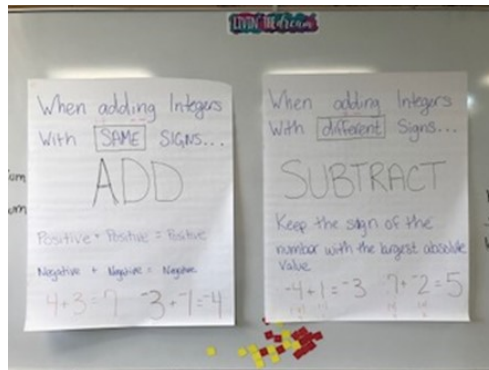 LIVIN' THE dream
When adding Integers
With SAME SIGNS...
ADD
Positive + Positive = Positive
Negative + Negative = Negative
4+3=7 -3+-1=-4
When adding Integers
With different Signs...
SUBTRACT
Keep the sign of the
number with the largest absolute
value
-4+1=-3 7+-2=5